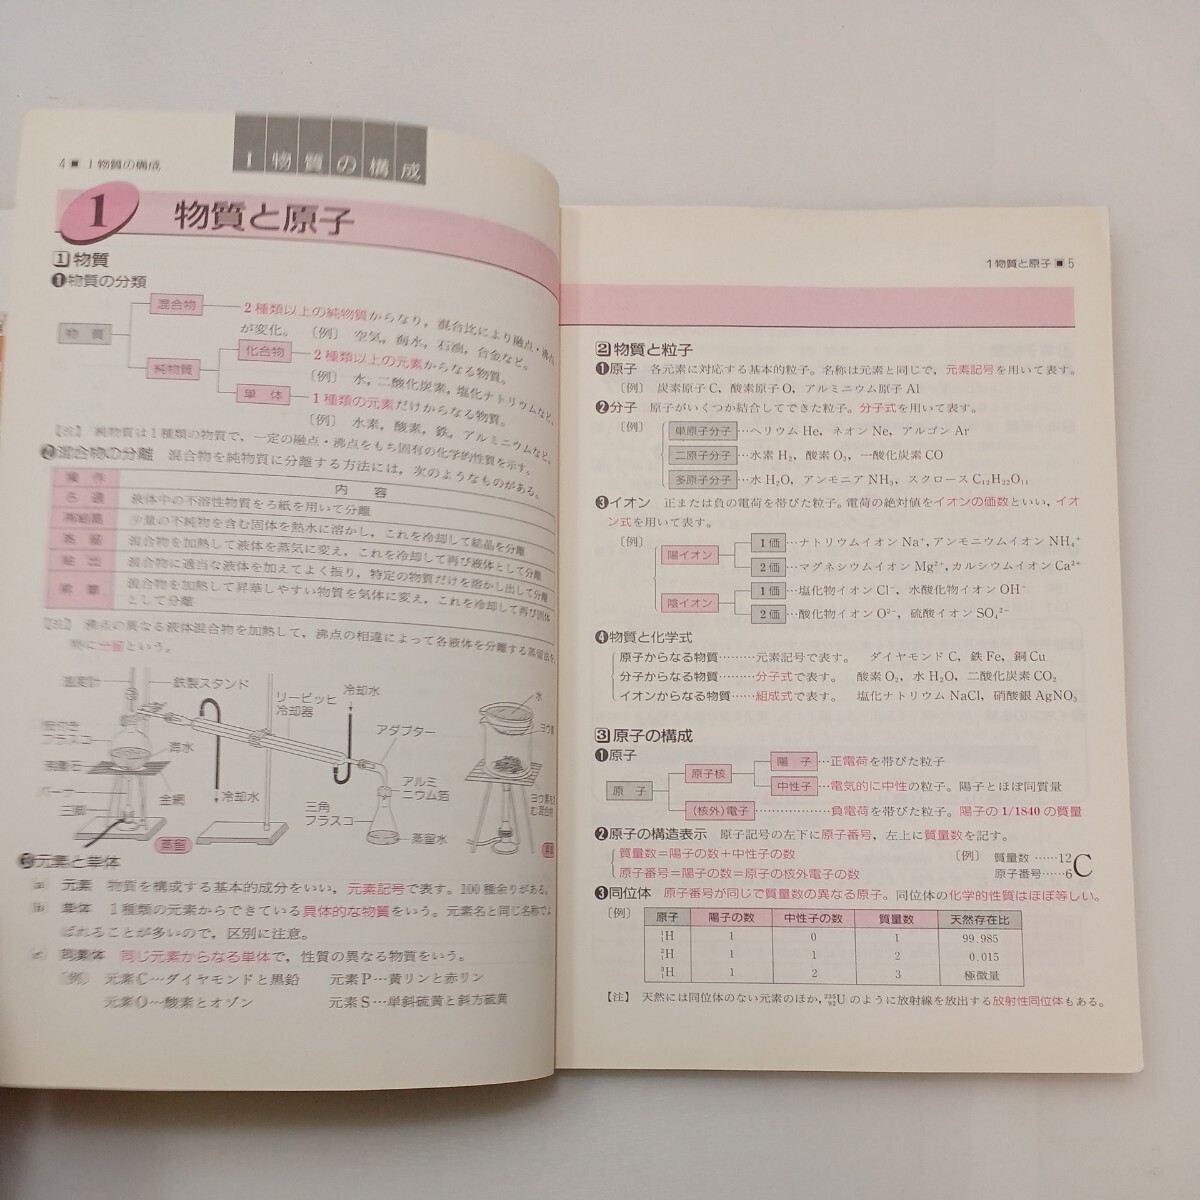 4 ■ I 物質の構成
I 物質の構成
1 物質と原子
1 物質
❶物質の分類
物質
混合物
2種類以上の純物質からなり，混合比により融点・沸点
が変化。〔例〕 空気，海水，石油，合金など。
純物質
化合物
2種類以上の元素からなる物質。
〔例〕 水，二酸化炭素，塩化ナトリウムなど。
単体
1種類の元素だけからなる物質。
〔例〕 水素，酸素，鉄，アルミニウムなど。
〔注〕 純物質は1種類の物質で，一定の融点・沸点をもち固有の化学的性質を示す。
❷混合物の分離 混合物を純物質に分離する方法には，次のようなものがある。
操作 内容
ろ過 液体中の不溶性物質をろ紙を用いて分離
再結晶 少量の不純物を含む固体を熱水に溶かし，これを冷却して結晶を分離
蒸留 混合物を加熱して液体を蒸気に変え，これを冷却して再び液体として分離
抽出 混合物に適当な液体を加えてよく振り，特定の物質だけを溶かし出して分離
混合物を加熱して昇華しやすい物質を気体に変え，これを冷却して再び固体
として分離
〔注〕 沸点の異なる液体混合物を加熱して，沸点の相違によって各液体を分離する蒸留法を，
特に分留という。
温度計
鉄製スタンド
リービッヒ
冷却器
冷却水
アダプター
水
フラスコ
海水
沸騰石
バーナー
三脚
金網
冷却水
三角
フラスコ
アルミ
ニウム箔
蒸留水
蒸留
❸元素と単体
(a) 元素 物質を構成する基本的成分をいい，元素記号で表す。100種余りがある。
(b) 単体 1種類の元素からできている具体的な物質をいう。元素名と同じ名称でよ
ばれることが多いので，区別に注意。
(c) 同素体 同じ元素からなる単体で，性質の異なる物質をいう。
〔例〕 元素C…ダイヤモンドと黒鉛 元素P…黄リンと赤リン
元素O…酸素とオゾン 元素S…単斜硫黄と斜方硫黄
1 物質と原子 ■ 5
2 物質と粒子
❶原子 各元素に対応する基本的粒子。名称は元素と同じで，元素記号を用いて表す。
〔例〕 炭素原子C，酸素原子O，アルミニウム原子Al
❷分子 原子がいくつか結合してできた粒子。分子式を用いて表す。
〔例〕 単原子分子…ヘリウムHe，ネオンNe，アルゴンAr
二原子分子…水素H₂，酸素O₂，一酸化炭素CO
多原子分子…水H₂O，アンモニアNH₃，スクロースC₁₂H₂₂O₁₁
❸イオン 正または負の電荷を帯びた粒子。電荷の絶対値をイオンの価数といい，イオ
ン式を用いて表す。
〔例〕
陽イオン
1価…ナトリウムイオンNa⁺，アンモニウムイオンNH₄⁺
2価…マグネシウムイオンMg²⁺，カルシウムイオンCa²⁺
陰イオン
1価…塩化物イオンCl⁻，水酸化物イオンOH⁻
2価…酸化物イオンO²⁻，硫酸イオンSO₄²⁻
❹物質と化学式
原子からなる物質………元素記号で表す。 ダイヤモンドC，鉄Fe，銅Cu
分子からなる物質………分子式で表す。 酸素O₂，水H₂O，二酸化炭素CO₂
イオンからなる物質……組成式で表す。 塩化ナトリウムNaCl，硝酸銀AgNO₃
3 原子の構成
❶原子
原子
原子核
陽子…正電荷を帯びた粒子
中性子…電気的に中性の粒子。陽子とほぼ同質量
(核外)電子………………負電荷を帯びた粒子。陽子の1/1840の質量
❷原子の構造表示 原子記号の左下に原子番号，左上に質量数を記す。
質量数＝陽子の数＋中性子の数
原子番号＝陽子の数＝原子の核外電子の数
〔例〕 質量数……12
原子番号……6
C
❸同位体 原子番号が同じで質量数の異なる原子。同位体の化学的性質はほぼ等しい。
〔例〕 原子 陽子の数 中性子の数 質量数 天然存在比
¹₁H 1 0 1 99.985
²₁H 1 1 2 0.015
³₁H 1 2 3 極微量
〔注〕 天然には同位体のない元素のほか，²³⁵₉₂Uのように放射線を放出する放射性同位体もある。